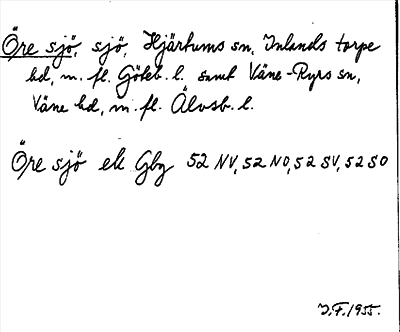 Öre sjö, sjö, Hjärtums sn, Inlands torpe
hd, m. fl. Göteb. l. samt Väne-Ryrs sn,
Väne hd, m. fl. Älvsb. l.
Öre sjö ek Gbg 52 NV, 52 NO, 52 SV, 52 SO
J.F. 1955.